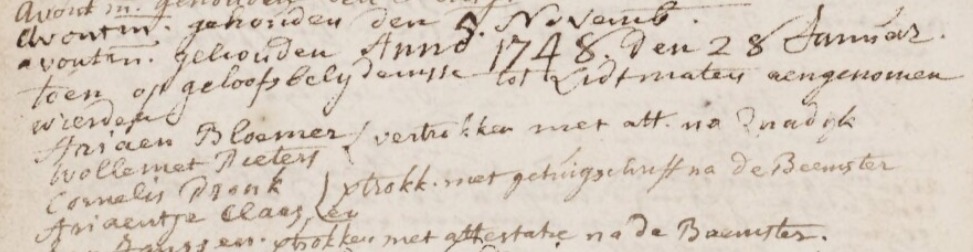 Avontm. gehouden den
Avontm. gehouden den 3. Novemb.
avontm. gehouden Anno 1748. den 28 Januar.
toen op geloofsbelydenisse tot Lidtmaten aengenomen
wierden
Ariaen Bloemer / vertrokken met att. na Quadyk
Wollemet Pieters
Cornelis Pronk
Ariaentje Claas, ptrokk. met getuigschrift na de Beemster
Janssen. ptrokken met attestatie na de Beemster.